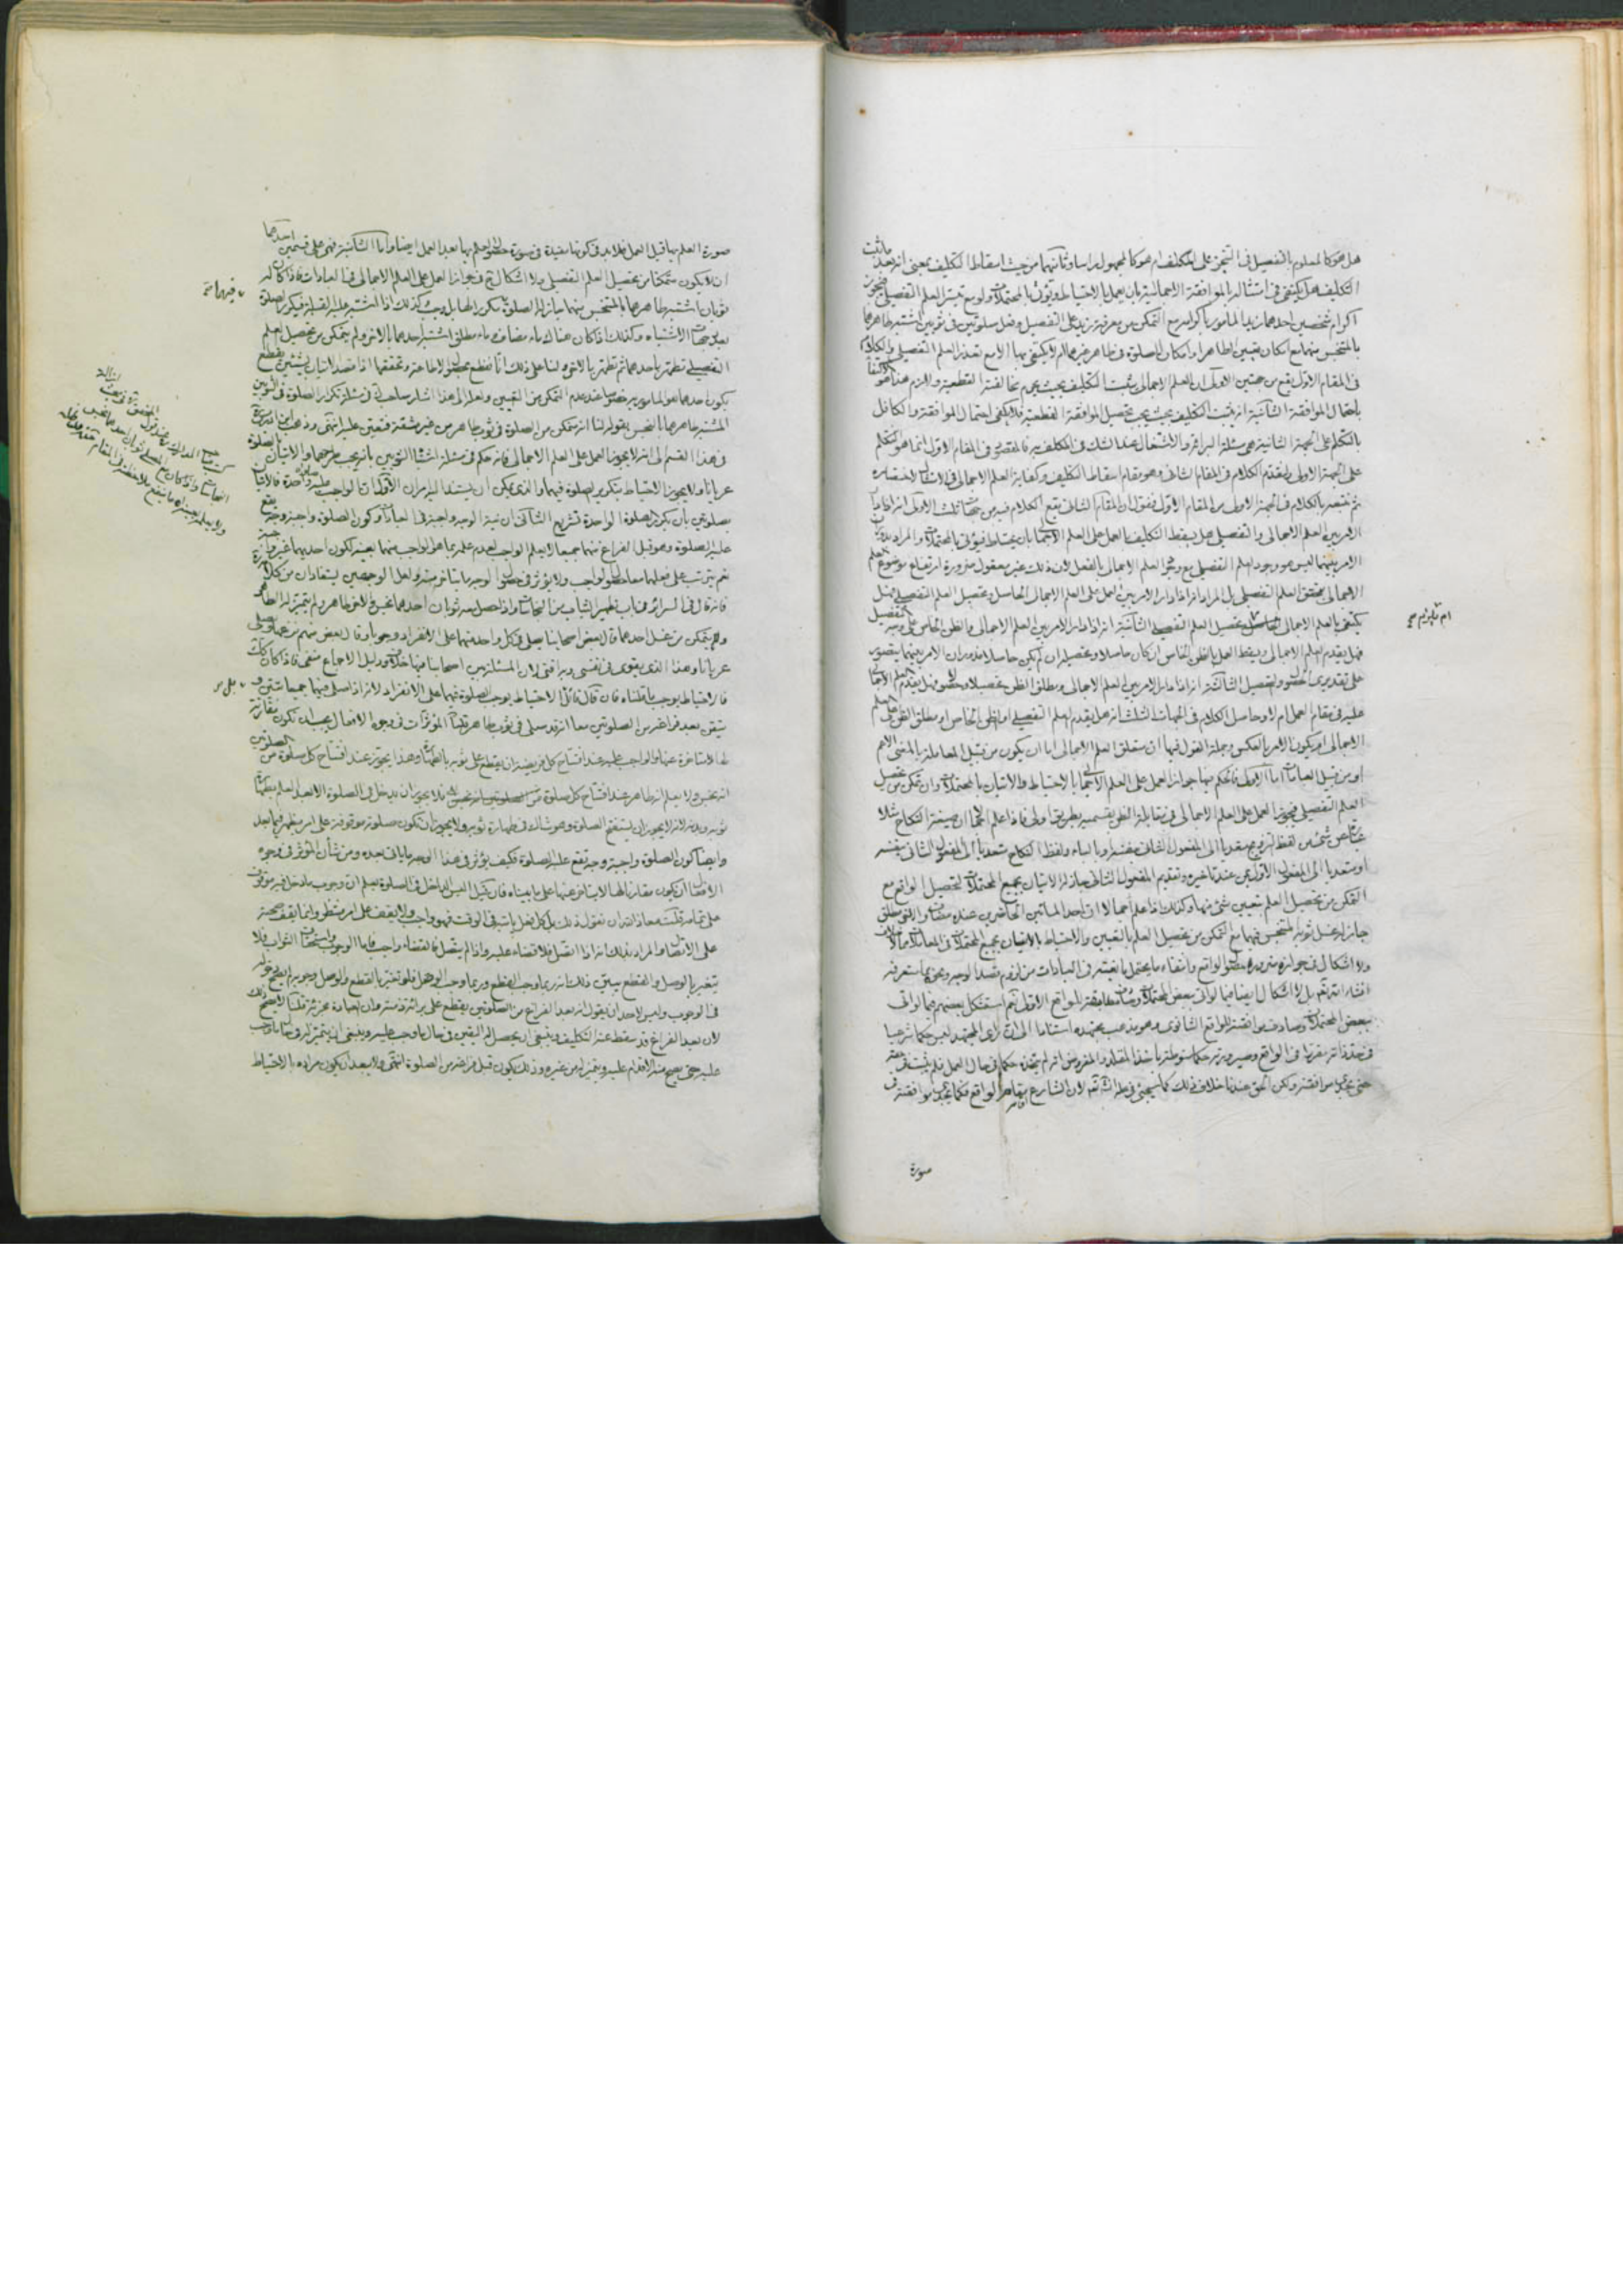 هل هو كالمعلوم بالتفصيل في التنجز على المكلف ام هو كالمجهول راسا وثانيهما من حيث اسقاط التكليف بمعنى انه بعد ما ثبت
التكليف هل يكتفى في امتثاله بالموافقة الاجمالية بان يعمل بالاحتياط ويؤتى بالمحتملات ولو مع تيسر العلم التفصيلي فيجوز
اكرام شخصين احدهما زيد المأمور باكرامه مع التمكن من معرفة زيد على التفصيل وفعل صلوتين في ثوبين مشتبه طاهرهما
بالمتنجس منهما مع امكان تعيين الطاهر او امكان الصلوة في طاهر غيرهما ام لا يكتفى بها الا مع تعذر العلم التفصيلي والكلام
في المقام الاول يقع من جهتين الاولى ان العلم الاجمالى يثبت التكليف بحيث يحرم مخالفته القطعية
باحتمال الموافقة الثانية انه يثبت التكليف بحيث يجب تحصيل الموافقة القطعية فلا يكفى احتمال الموافقة والكافل
بالتكلم على الجهة الثانية هى مسئلة البرائة والاشتغال عند الشك في المكلف به فالمقصود في المقام الاول انما هو التكلم
على الجهة الاولى ولنقدم الكلام في المقام الثانى وهو مقام اسقاط التكليف وكفاية العلم الاجمالى في الامتثال لاختصاره
ثم نتبعه بالكلام في الجهة الاولى من المقام الاول فنقول ان المقام الثانى يقع الكلام فيه من جهات ثلث الاولى انه اذا دار
الامر بين العلم الاجمالى والتفصيلى هل يسقط التكليف بالعمل على العلم الاجمالى بان يحتاط فيؤتى بالمحتملات والمراد بدوران
الامر بينهما ليس هو وجود العلم التفصيلى مع وجود العلم الاجمالى بالفعل لان ذلك غير معقول ضرورة ارتفاع موضوع العلم
الاجمالى بتحقق العلم التفصيلى بل المراد انه اذا دار الامر بين العمل على العلم الاجمالى الحاصل وتحصيل العلم التفصيلى فهل
يكتفى بالعلم الاجمالى الحاصل او تحصيل العلم التفصيلى الثانية انه اذا دار الامر بين العلم الاجمالى والظن الخاص على وجه التفصيل
فهل يقدم العلم الاجمالى ويسقط العمل بالظن الخاص ان كان حاصلا وتحصيله ان لم يكن حاصلا فدوران الامر بينهما يتصور
على تقديرى الحصول والتحصيل الثالثة انه اذا دار الامر بين العلم الاجمالى ومطلق الظن تحصيلا وحصولا فهل يقدم العلم الاجمالى
عليه في مقام العمل ام لا وحاصل الكلام في الجهات الثلث انه هل يقدم العلم التفصيلى او الظن الخاص او مطلق الظن على العلم
الاجمالى او يكون الامر بالعكس وجملة القول فيها ان متعلق العلم الاجمالى اما ان يكون من قبيل المعاملة بالمعنى الاعم
او من قبيل العبادات اما الاولى فالحكم فيها جواز العمل على العلم الاجمالى بالاحتياط والاتيان بالمحتملات وان تمكن من تحصيل
العلم التفصيلى فيجوز العمل على العلم الاجمالى في مقابلة الظن بقسميه بطريق اولى فاذا علم اجمالا ان صيغة النكاح مثلا
لفظ التزويج متعديا الى المفعول الثانى بنفسه او بالباء ولفظ النكاح متعديا الى المفعول الثانى بنفسه
او متعديا الى المفعول الاول بمن عند تاخيره وتقديم المفعول الثانى جاز له الاتيان بجميع المحتملات لتحصيل الواقع مع
التمكن من تحصيل العلم بتعيين شئ منها وكذلك اذا علم اجمالا ان احد المائين الحاضرين عنده مضاف والاخر مطلق
جاز له غسل ثوبه المتنجس فيهما مع التمكن من تحصيل العلم بالتعيين والاحتياط بالاتيان بجميع المحتملات في المعاملات مما لا خلاف
ولا اشكال في جوازه ضرورة حصول الواقع وانتفاء ما يحتمل ما نعيته في العبادات من لزوم قصد الوجه ونحوه مما ستعرفه
انشاء الله تعالى بل لا اشكال ايضا فيما لو اتى ببعض المحتملات وصادف مطابقة الواقع الاولى نعم استشكل بعضهم فيما لو اتى
ببعض المحتملات وصادف موافقة الواقع الثانوى وهو مذهب مجتهده استنادا الى ان راى المجتهد ليس حكما شرعيا
في حد ذاته مقررا في الواقع وصيرورته حكما منوطة باخذ المقلد والمفروض انه لم يتخذه حكما في حال العمل فلم يثبت في حقه
حتى يجدى موافقته ولكن الحق عندنا خلاف ذلك كما سيجئ في محله انشاء الله تعالى لان الشارع
صورة
صورة العلم بها قبل العمل فلابد في كونها مفيدة في صورة حصول العلم بها بعد العمل ايضا واما الثانية فهى على قسمين احدهما
ان لا يكون متمكنا من تحصيل العلم التفصيلى ولا اشكال ح في جواز العمل على العلم الاجمالى في العبادات فاذا كان له
ثوبان اشتبه طاهرهما بالمتنجس منهما جاز له الصلوة بتكريرها بل وجب وكذلك اذا اشتبه عليه القبلة فيكرر الصلوة
بعد جهات الاشتباه وكذلك اذا كان هناك ماء مضاف وماء مطلق اشتبه احدهما بالاخر ولم يتمكن من تحصيل العلم
التفصيلى تطهر باحدهما ثم تطهر بالاخر لنا على ذلك انا نقطع بحصول الاطاعة وتحققها اذا قصد الاتيان بشيئين يقطع
بكون احدهما هو المامور به خصوصا عند عدم التمكن من التعيين ولعله الى هذا اشار صاحب في مسئلة تكرار الصلوة في الثوبين
المشتبه طاهرهما بالنجس بقوله لنا انه متمكن من الصلوة في ثوب طاهر من غير مشقة فتعين عليه انتهى وذهب ابن ادريس
في هذا القسم الى انه لا يجوز العمل على العلم الاجمالى فانه حكم في مسئلة اشتباه الثوبين بانه يجب طرحهما والاتيان بالصلوة
عريانا ولا يجوز الاحتياط بتكرير الصلوة فيهما والذى يمكن ان يستند اليه امران الاول ان الواجب عليه صلوة واحدة فالاتيان
بصلوتين بان يكرر الصلوة الواحدة تشريع الثانى ان نية الوجه واجبة في العبادات وكون الصلوة واجبة وجه يقع
عليه الصلوة وهو قبل الفراغ منهما جميعا لا يعلم الواجب لعدم علمه بما هو الواجب منهما بعينه
نعم يترتب على فعلهما معا حصول الواجب ولا يؤثر في حصول الوجه ما يتاخر عنه ولعل الوجهين يستفادان من كلامه
فانه قال في السرائر في باب تطهير الثياب من النجاسات واذا حصل معه ثوبان احدهما نجس والاخر طاهر ولم يتميز له الطاهر
ولم يتمكن من غسل احدهما قال بعض اصحابنا يصلى في كل واحد منهما على الانفراد وجوبا وقال بعض منهم نزعهما ويصلى
عريانا وهذا الذى يقوى في نفسى وبه افتى لان المسئلة بين اصحابنا فيها خلاف ودليل الاجماع منفى فاذا كان كذلك
فالاحتياط يوجب ما قلناه فان قال قائل الاحتياط يوجب الصلوة فيهما على الانفراد لانه اذا صلى فيهما جميعا تبين و
تيقن بعد فراغه من الصلوتين معا انه قد صلى في ثوب طاهر قلنا المؤثرات في وجوه الافعال يجب ان تكون مقارنة
لها لا متاخرة عنها والواجب عليه عند افتتاح كل فريضة ان يقطع على ثوبه بالطهارة وهذا يجوز عند افتتاح كل صلوة من الصلوتين
انه نجس ولا يعلم انه طاهر عند افتتاح كل صلوة فلا يجوز ان يدخل في الصلوة الا بعد العلم بطهارة
ثوبه وبدنه لانه لا يجوز ان يستفتح الصلوة وهو شاك في طهارة ثوبه ولا يجوز ان تكون صلوته موقوفة على امر يظهر فيما بعد
وايضا كون الصلوة واجبة وجه تقع عليه الصلوة فكيف يؤثر في هذا الوجه ما ياتى بعده ومن شان المؤثر في وجوه
الافعال ان يكون مقارنا لها لا يتاخر عنها على ما بيناه فان قيل اليس الداخل في الصلوة يعلم ان وجوب ما دخل فيه موقوف
على تمامه قلت معاذ الله ان نقول ذلك بل كل فعل ياتيه في الوقت فهو واجب ولا يقف على امر منتظر وانما يقف صحته
على الاتصال والمراد بذلك انه اذا اتصل فلا قضاء عليه واذا لم يتصل فالقضاء واجب فاما الوجوب واستحقاق الثواب فلا
يتغير بالوصل والقطع يبين ذلك انه ربما وجب القطع وربما وجب الوصل فلو تغير بالقطع والوصل وجوبه لم يصح دخوله
في الوجوب وليس لاحد ان يقول انه بعد الفراغ من الصلوتين يقطع على برائة ذمته وان العبادة مجزية قلنا لا يصح ذلك
لان بعد الفراغ قد سقط عنه التكليف وينبغى ان يحصل له اليقين في حال ما وجب عليه وينبغى ان يتميز له في حال ما وجب
عليه حتى يصح منه الاقدام عليه ويتميز له من غيره وذلك يكون قبل فراغه من الصلوة انتهى ولا يبعد ان يكون مراده بالاحتياط